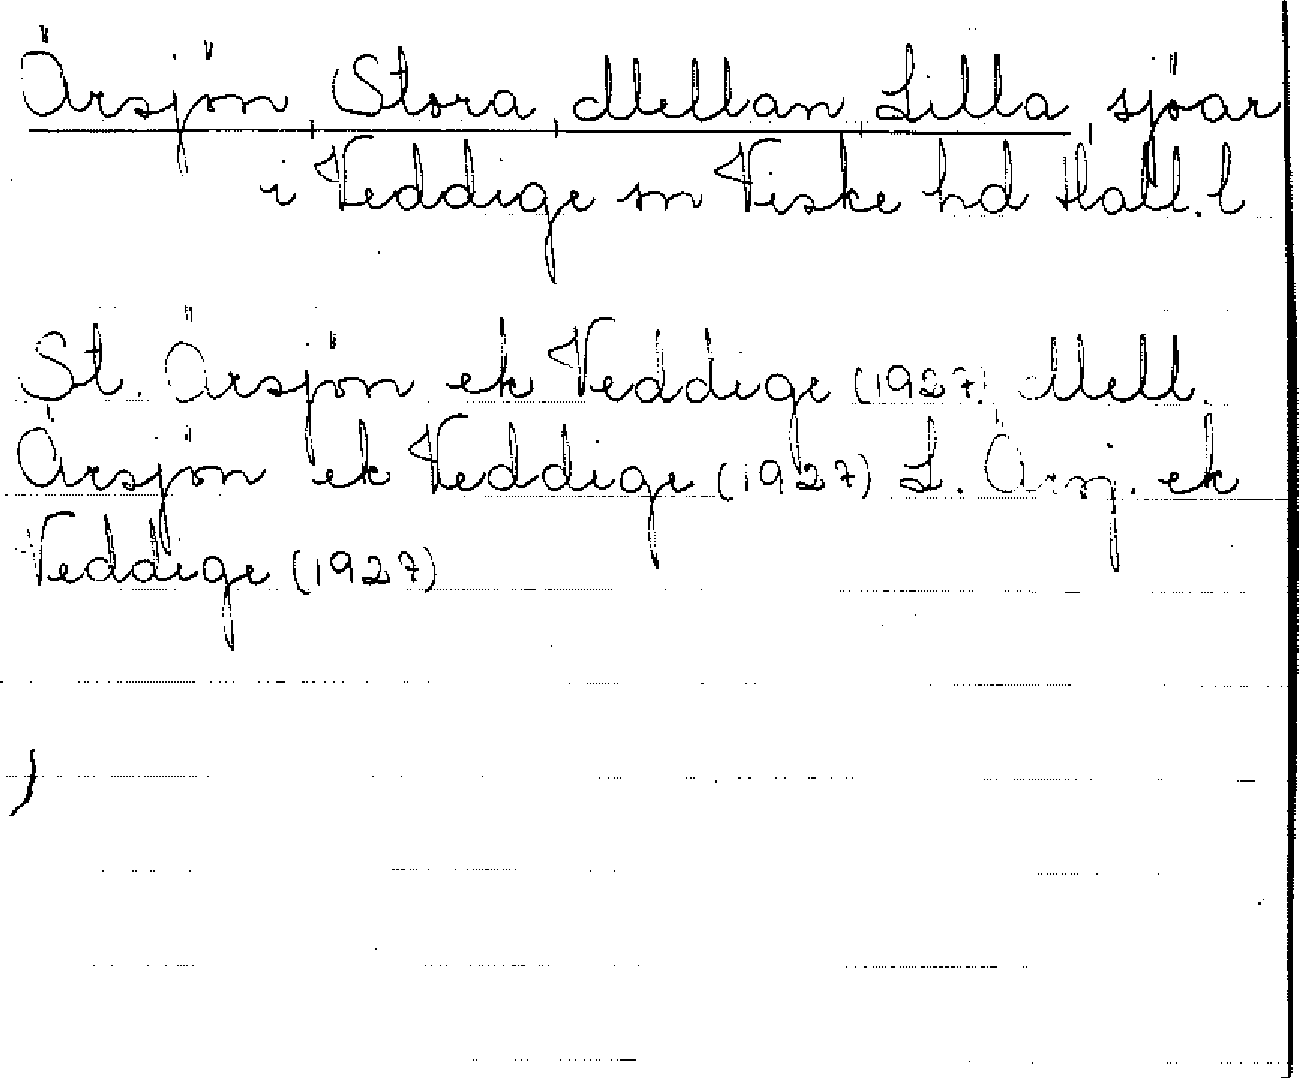 Örsjön, Stora, Mellan, Lilla, sjöar
i Veddige sn Viske hd Hall. l
St. Örsjön ek Veddige (1927) Mell.
Örsjön ek Veddige (1927) L. Örsj. ek
Veddige (1927)
)